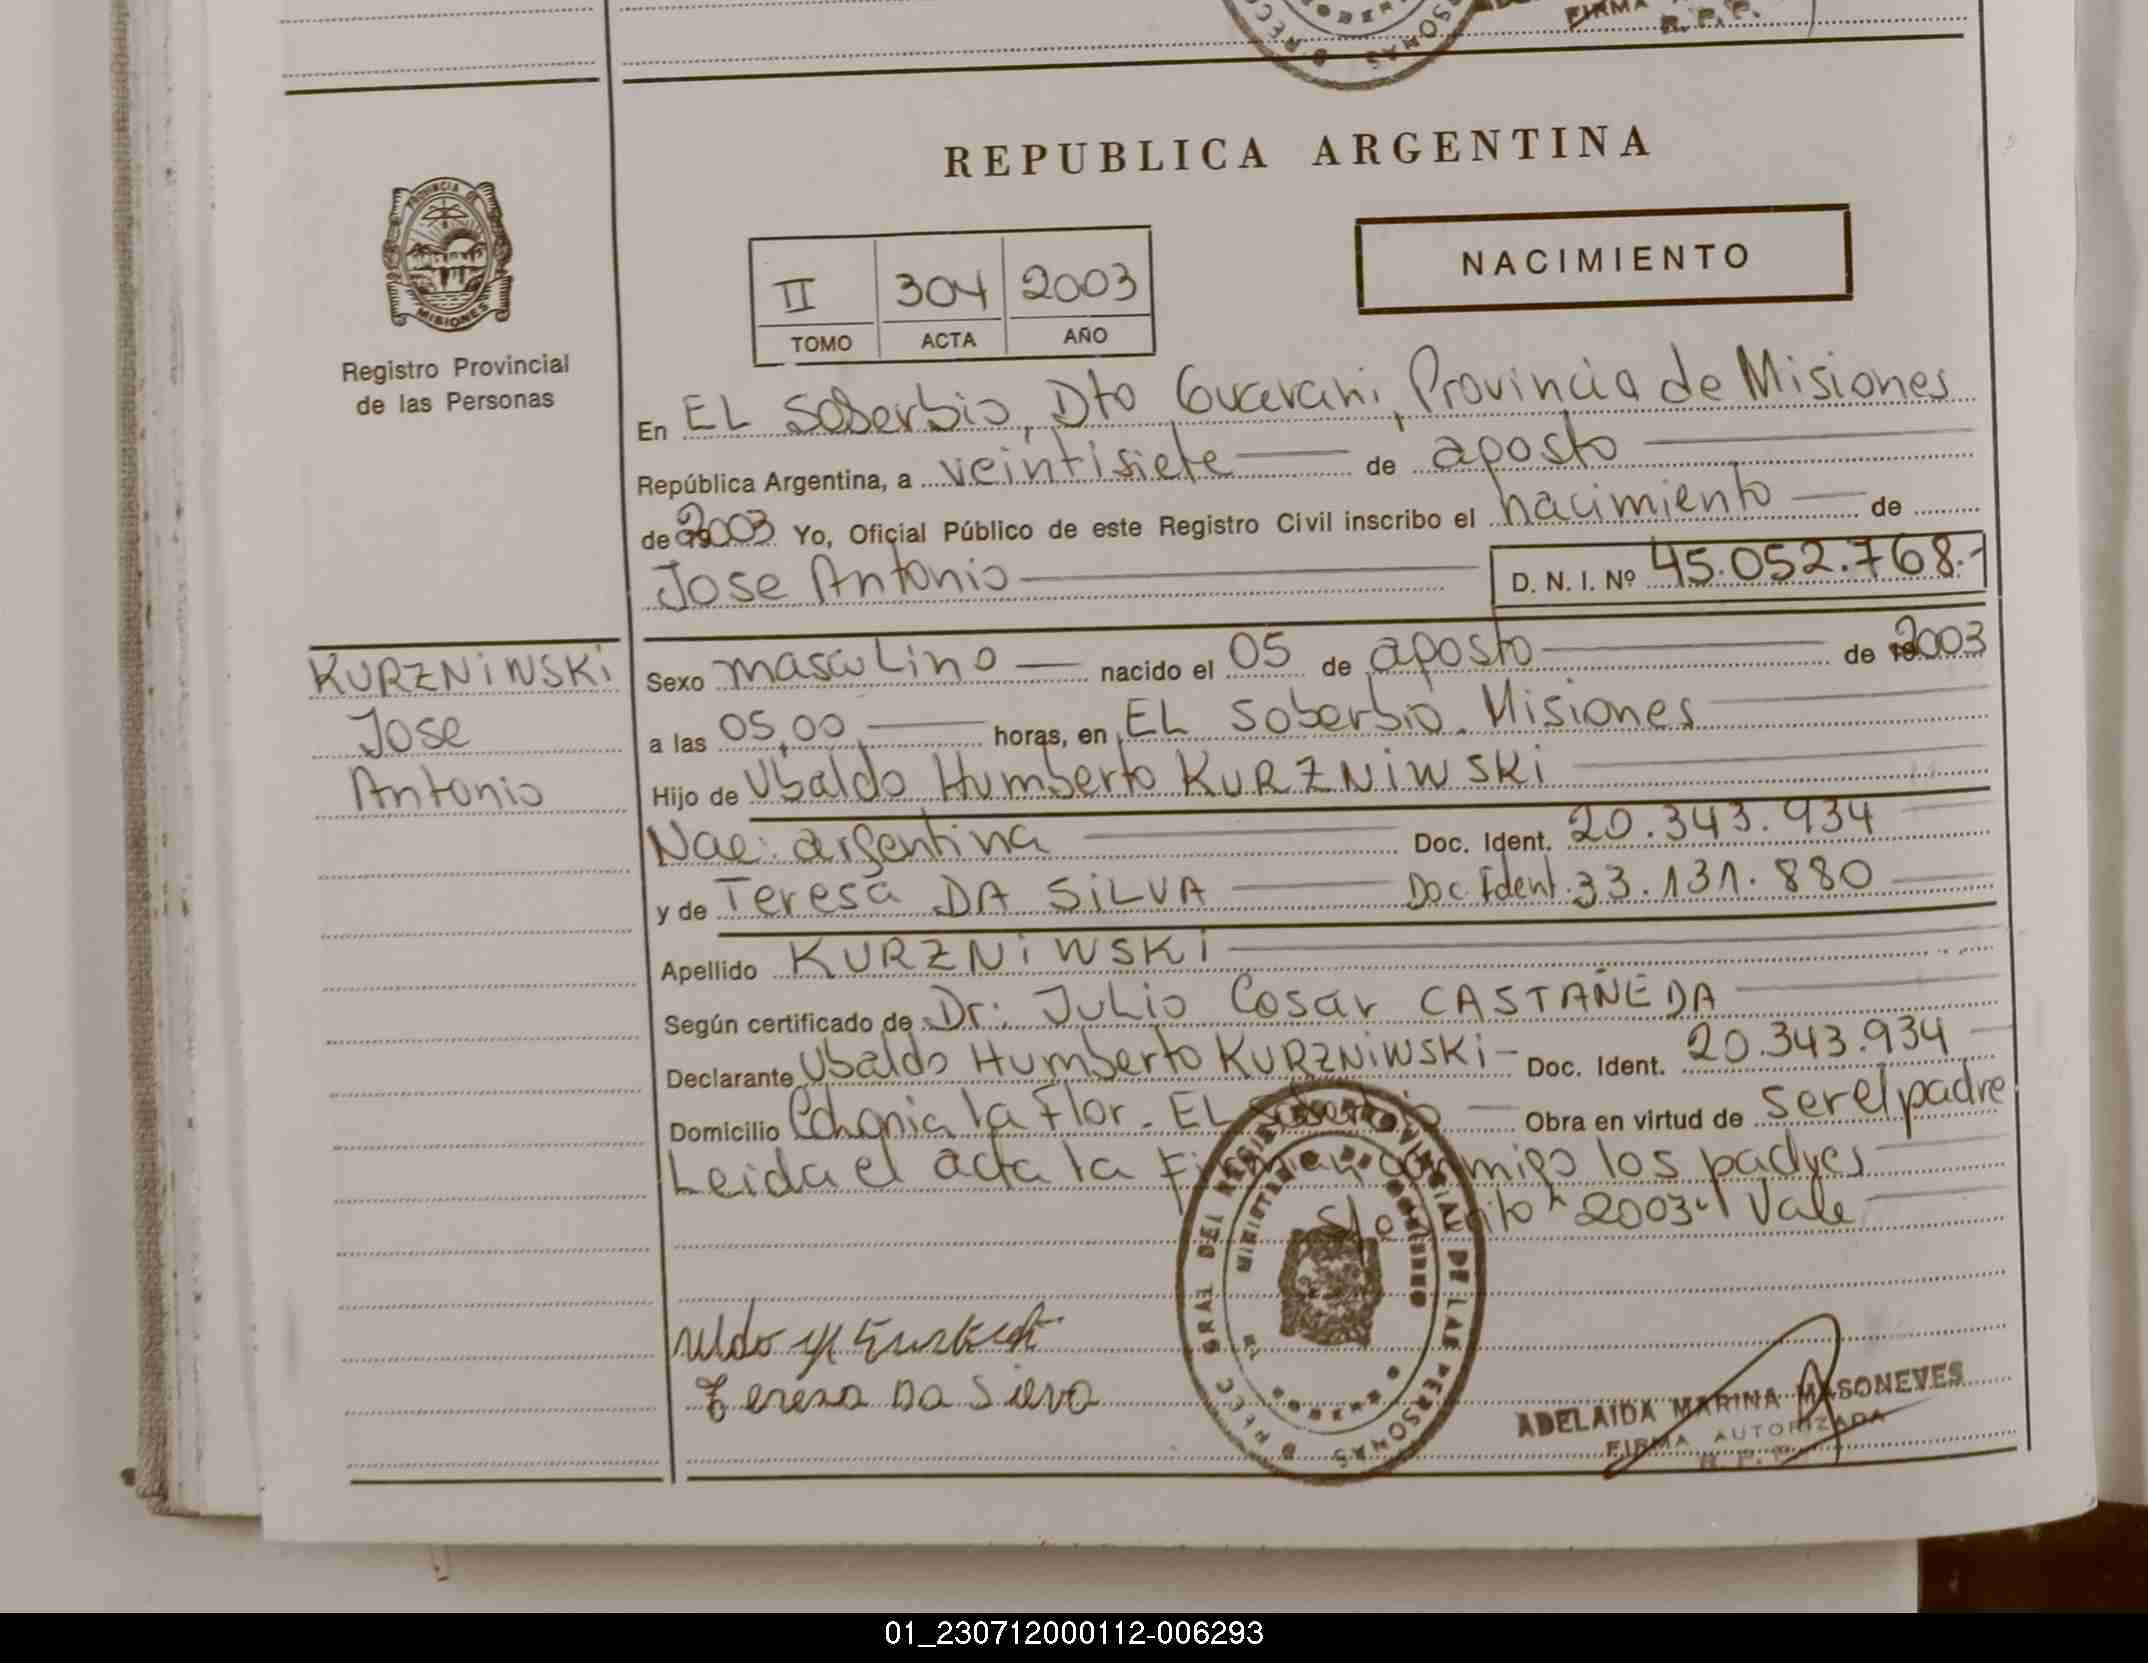 FIRMA
R. P. P.
REPUBLICA ARGENTINA
PROVINCIA DE
MISIONES
NACIMIENTO
II 304 2003
TOMO ACTA AÑO
Registro Provincial
de las Personas
En EL Soberbio, Dto Guarani, Provincia de Misiones
República Argentina, a veintisiete de agosto
de 2003 Yo, Oficial Público de este Registro Civil inscribo el nacimiento de
Jose Antonio D. N. I. Nº 45.052.768.-
KURZNiWSKi
Jose
Antonio
Sexo masculino nacido el 05 de agosto de 2003
a las 05,00 horas, en EL Soberbio. Misiones
Hijo de Ubaldo Humberto KURZNiWSKi
Nac: argentina Doc. Ident. 20.343.934
y de Teresa DA SiLVA Doc Ident. 33.131.880
Apellido KURZNiWSKi
Según certificado de Dr: Julio Cesar CASTAÑEDA
Declarante Ubaldo Humberto KURZNiWSKi - Doc. Ident. 20.343.934
Domicilio Colonia la Flor. EL Soberbio Obra en virtud de ser el padre
Leida el acta la Firman conmigo los padres
"2003" Vale
Teresa Da Silva
DIREC GRAL DEL REGISTRO PROVINCIAL DE LAS PERSONAS
MINISTERIO DE GOBIERNO
ADELAIDA MARINA MASONEVES
FIRMA AUTORIZADA
R. P. P.
01_230712000112-006293